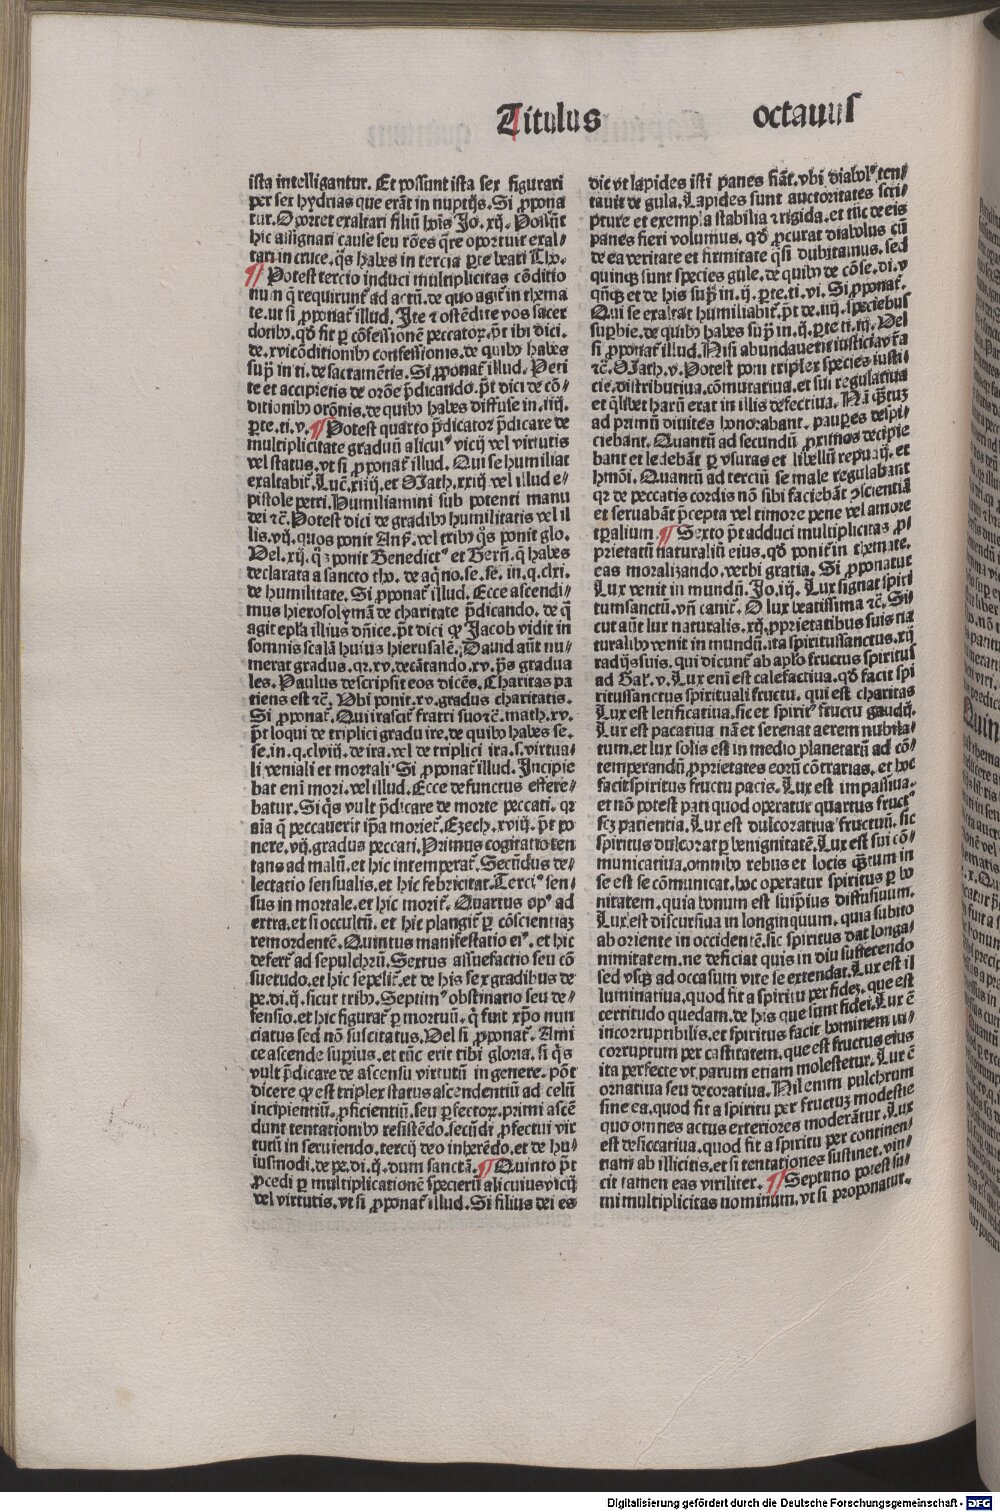 Titulus octauus
ista intelligantur. Et possunt ista sex figurari
per sex hydrias que erāt in nuptijs. Si ꝓpona
tur. Oportet exaltari filiū hoīs Jo. xij. Possūt
hic assignari cause seu rōes q̄re oportuit exal⸗
tari in cruce. q̄s habes in tercia p̄te beati Tho.
¶ Potest tercio induci multiplicitas cōditio
num q̄ requirunt᷑ ad actū. de quo agit᷑ in thema
te. ut si ꝓponat᷑ illud. Ite ⁊ ostēdite vos sacer
dotibꝰ. qd̄ fit ꝑ cōfessionē peccatoꝝ. p̄t ibi dici.
de. xvi cōditionibꝰ confessionis. de quibꝰ habes
sup̄ in ti. de sacramētis. Si ꝓponat᷑ illud. Peti
te et accipietis de orōe p̄dicando. p̄t dici de cō⸗
ditionibꝰ orōnis. de quibꝰ habes diffuse in. iiij.
p̄te. ti. v. ¶ Potest quarto p̄dicatoꝝ p̄dicare de
multiplicitate graduū alicuiꝰ vicij vel virtutis
vel status. vt si ꝓponat᷑ illud. Qui se humiliat
exaltabit᷑. Luc̄. xiiij. et Math. xxiij vel illud e⸗
pistole petri. Humiliamini sub potenti manu
dei ⁊c̄. Potest dici de gradibꝰ humilitatis vel il
lis. vij. quos ponit Anß. vel tribꝰ q̄s ponit glo.
Vel. xij. q̄s ponit Benedictꝰ et Bern̄. q̄ habes
declarata a sancto tho. de aq̄no. se. se. in. q. clxi.
de humilitate. Si ꝓponat᷑ illud. Ecce ascendi⸗
mus hierosolymā de charitate p̄dicando. de q̄
agit epl̄a illius dn̄ice. p̄t dici ꝙ Jacob vidit in
somnis scalā huius hierusalē. Dauid aūt nu⸗
merat gradus. qꝛ. xv. decātando. xv. p̄s gradua
les. Paulus descripsit eos dicēs. Charitas pa
tiens est ⁊c̄. Vbi ponit. xv. gradus charitatis.
Si ꝓponat᷑. Qui irascit᷑ fratri suo ⁊c̄. math. xv.
p̄t loqui de triplici gradu ire. de quibꝰ habes se.
se. in. q. clviij. de ira. vel de triplici ira. s. virtua⸗
li veniali et mortali. Si ꝓponat᷑ illud. Incipie
bat enī mori. vel illud. Ecce defunctus effere⸗
batur. Si q̄s vult p̄dicare de morte peccati. qꝛ
aīa q̄ peccauerit ip̄a moriet᷑. Ezech. xviij. p̄t po
nere. vij. gradus peccati. Primus cogitatio ten
tans ad malū. et hic intemperat᷑. Secūdus de⸗
lectatio sensualis. et hic febricitat. Terciꝰ sen⸗
sus in mortale. et hic morit᷑. Quartus opꝰ ad
extra. et si occultū. et hic plangit᷑ ꝑ cōscientiaꝫ
remordentē. Quintus manifestatio eiꝰ. et hic
defert᷑ ad sepulchrū. Sextus assuefactio seu cō
suetudo. et hic sepelit᷑. et de his sex gradibus de
pe. di. ij. sicut tribꝰ. Septimꝰ obstinatio seu de⸗
fensio. et hic figurat᷑ ꝑ mortuū. q̄ fuit xp̄o nun
ciatus sed nō suscitatus. Vel si ꝓponat᷑. Ami
ce ascende supius. et tūc erit tibi gloria. si q̄s
vult p̄dicare de ascensu virtutū in genere. pōt
dicere ꝙ est triplex status ascendentiū ad celū
incipientiū. ꝓficientiū. seu ꝑfectoꝝ. primi ascē
dunt tentationibꝰ resistēdo. secūdi ꝓfectui vir
tutū in seruiendo. tercij deo inherēdo. et de hu⸗
iusmodi. de pe. di. ij. dum sanctā. ¶ Quinto p̄t
ꝓcedi ꝑ multiplicationē specierū alicuius vicij
vel virtutis. vt si ꝓponat᷑ illud. Si filius dei es
dic vt lapides isti panes fiāt. vbi diabolꝰ ten⸗
tauit de gula. Lapides sunt auctoritates scri⸗
pture et exempla stabilia ⁊ rigida. et tūc de eis
panes fieri volumus. qd̄ ꝓcurat diabolus cū
de ea veritate et firmitate q̄si dubitamus. sed
quinqꝫ sunt species gule. de quibꝰ de cōse. di. v
qn̄qꝫ et de his sup̄ in. ij. p̄te. ti. vi. Si ꝓponat᷑.
Qui se exaltat humiliabit᷑. p̄t de. iiij. speciebus
supbie. de quibꝰ habes sup̄ in. ij. p̄te ti. iij. Vel
si ꝓponat᷑ illud. Nisi abundauerit iusticia vr̄a
⁊c̄. Math. v. Potest poni triplex species iusti⸗
cie. distributiua. cōmutatiua. et sui regulatiua
et q̄libet harū erat in illis defectiua. Nā q̄ntuꝫ
ad primū diuites honorabant. pauꝑes despi⸗
ciebant. Quantū ad secundū ꝓximos decipie
bant et ledebāt ꝑ vsuras et libellū repudij. et
hmōi. Quantū ad terciū se male regulabant
qꝛ de peccatis cordis nō sibi faciebāt ꝯscientiā
et seruabāt p̄cepta vel timore pene vel amore
tp̄alium. ¶ Sexto p̄t adduci multiplicitas ꝓ⸗
prietatū naturaliū eius. qd̄ ponit᷑ in themate.
eas moralizando. verbi gratia. Si ꝓponatur
Lux venit in mundū. Jo. iij. Lux signat spiri
tumsanctū. vn̄ canit᷑. O lux beatissima ⁊c̄. Si
cut aūt lux naturalis. xij. ꝓprietatibus suis na
turalibꝰ venit in mundū. ita spiritussanctus. xij
radijs suis. qui dicunt᷑ ab apl̄o fructus spiritus
ad Gal̄. v. Lux enī est calefactiua. qd̄ facit spi
ritussanctus spirituali fructu. qui est charitas
Lux est letificatiua. sic et spiritꝰ fructu gaudij.
Lux est pacatiua nā et serenat aerem nubila⸗
tum. et lux solis est in medio planetarū ad cō⸗
temperandū ꝓprietates eorū cōtrarias. et hoc
facit spiritus fructu pacis. Lux est impassiua.
et nō potest pati quod operatur quartus fructꝰ
scꝫ patientia. Lux est dulcoratiua fructuū. sic
spiritus dulcorat ꝑ benignitatē. Lux est sui cō⸗
municatiua. omnibꝰ rebus et locis q̄ntum in
se est se cōmunicat. hoc operatur spiritus ꝑ bo
nitatem. quia bonum est suip̄ius diffusiuum.
Lux est discursiua in longinquum. quia subito
ab oriente in occidentē. sic spiritus dat longa⸗
nimitatem. ne deficiat quis in diu sufferendo
sed vsqꝫ ad occasum vite se extendat. Lux est il
luminatiua. quod fit a spiritu per fidez. que est
certitudo quedam. de his que sunt fidei. Lux ē
incorruptibilis. et spiritus facit hominem in⸗
corruptum per castitatem. que est fructus eius
ita perfecte vt parum etiam molestetur. Lux ē
ornatiua seu decoratiua. Nil enim pulchrum
sine ea. quod fit a spiritu per fructuꝫ modestie
quo omnes actus exteriores moderātur. Lux
est desiccatiua. quod fit a spiritu per continen⸗
tiam ab illicitis. et si tentationes sustinet. vin⸗
cit tamen eas viriliter. ¶ Septimo potest su⸗
mi multiplicitas nominum. vt si proponatur.
Digitalisierung gefördert durch die Deutsche Forschungsgemeinschaft - DFG